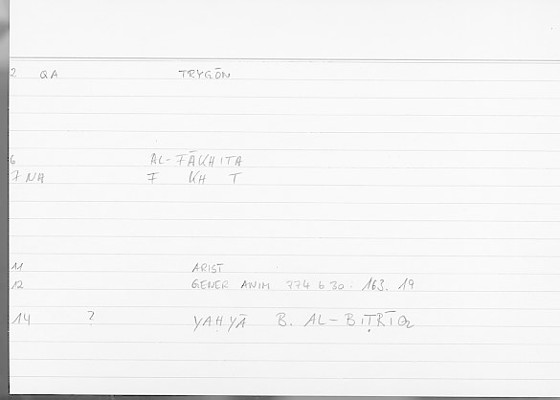 2 QA TRYGŌN
6 AL-FĀKHITA
7 NA F KH T
11 ARIST
12 GENER ANIM 774 b 30. 163. 19
14 ? YAḤYĀ B. AL-BIṬRĪQ